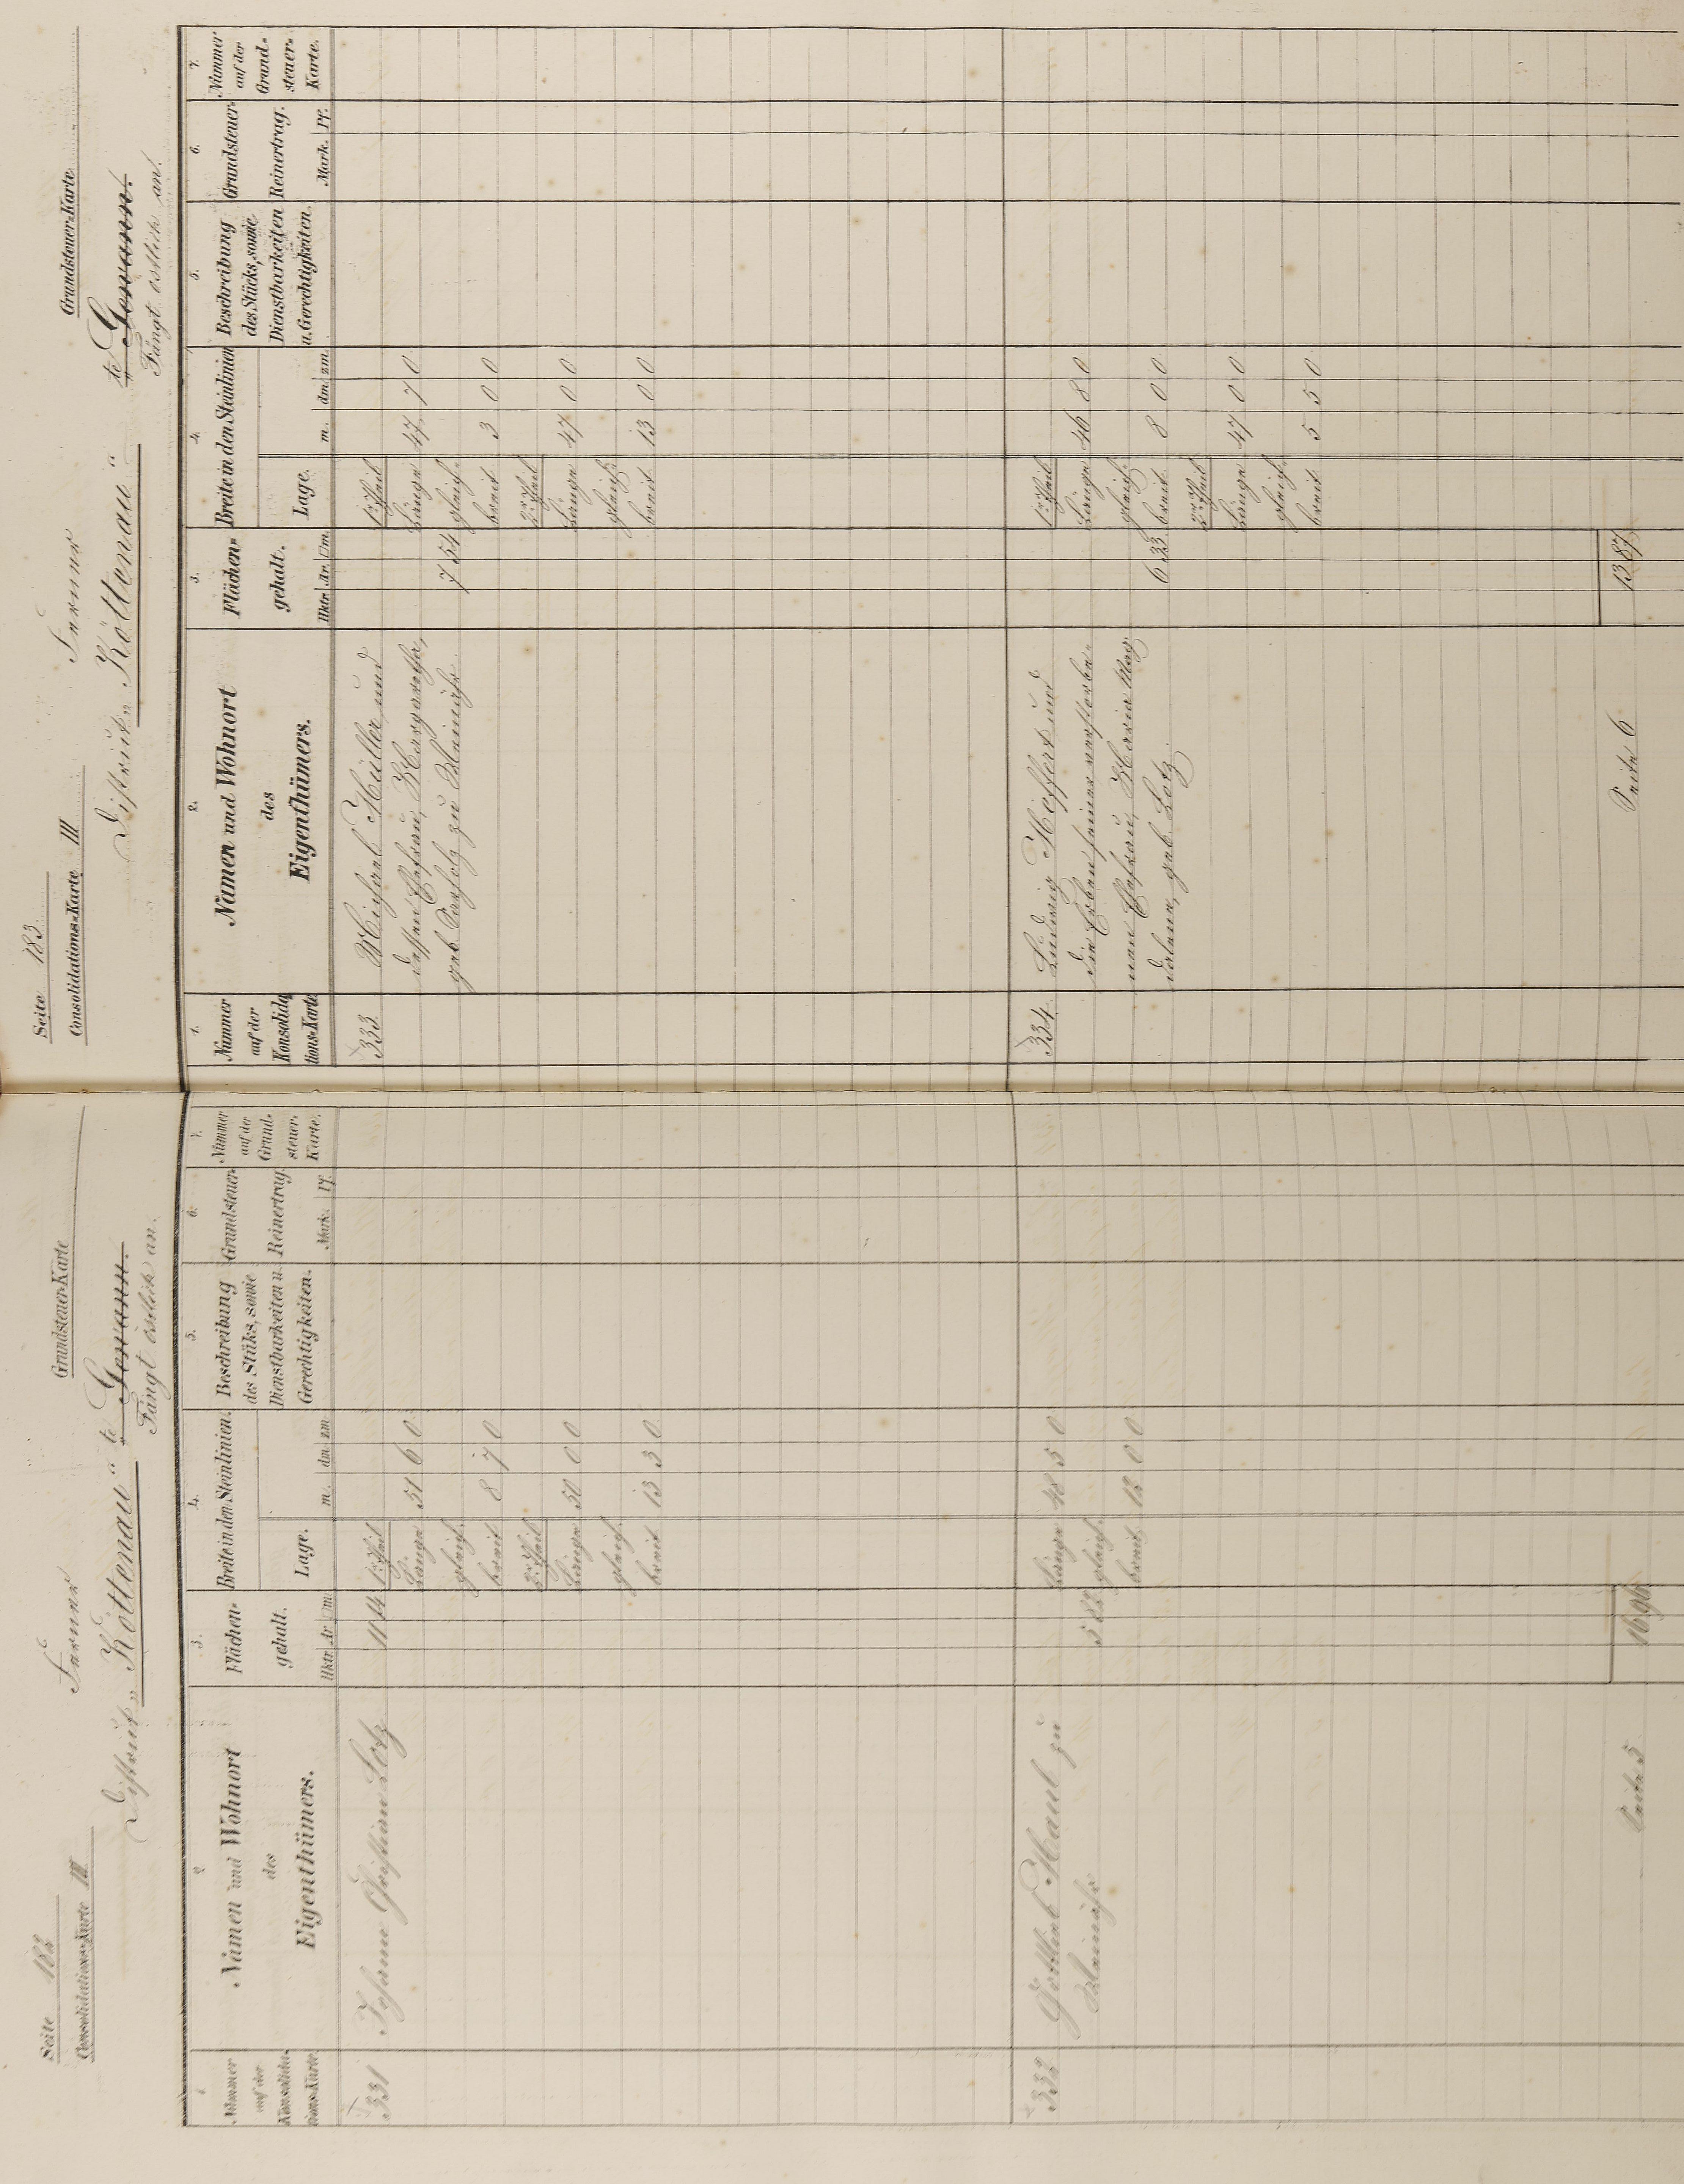 Seite 182
Consolidations-Karte III
Grundsteuer-Karte
Ferner
District „Köttenau“
te Gewann.
Fängt östlich an.
1.
Nummer
auf der
Konsolida-
tions-Karte
2.
Namen und Wohnort
des
Eigenthümers.
3.
Flächen-
gehalt.
Hktr. Ar. □m.
4.
Breite in den Steinlinien.
Lage.
m. dm. zm.
5.
Beschreibung
des Stüks, sowie
Dienstbarkeiten u.
Gerechtigkeiten.
6.
Grundsteuer-
Reinertrag.
Mark. Pf.
7.
Nummer
auf der
Grund-
steuer-
Karte.
331 Johann Christian Lotz 11 14 1r Theil
Länge 51 6 0
gleich-
breit 8 7 0
2r Theil
Länge 50 0 0
gleich-
breit 13 3 0
332 Gottlieb Maul zu Länge 48 5 0
5 82 gleich-
breit 12 0 0
Seite 5 16 96
Seite 183
Consolidations-Karte III
Grundsteuer-Karte
Ferner
District „Köttenau“
te Gewann.
Fängt östlich an.
1.
Nummer
auf der
Konsolida-
tions-Karte
2.
Namen und Wohnort
des
Eigenthümers.
3.
Flächen-
gehalt.
Hktr. Ar. □m.
4.
Breite in den Steinlinien
Lage.
m. dm. zm.
5.
Beschreibung
des Stücks, sowie
Dienstbarkeiten
u. Gerechtigkeiten.
6.
Grundsteuer-
Reinertrag.
Mark. Pf.
7.
Nummer
auf der
Grund-
steuer-
Karte.
333. Michael Müller und 1r Theil
dessen Ehefrau, Margaretha, Länge 47 7 0
geb. zu 7 54 gleich-
breit 3 0 0
2r Theil
Länge 47 0 0
gleich-
breit 13 0 0
334. Ludwig Heffert und 1r Theil
die Erben seiner verstorbe- Länge 46 8 0
nen Ehefrau, Maria Mag- gleich-
dalena, geb. Lotz. 6 33 breit 8 0 0
2r Theil
Länge 47 0 0
gleich-
breit 5 5 0
Seite 6 13 87